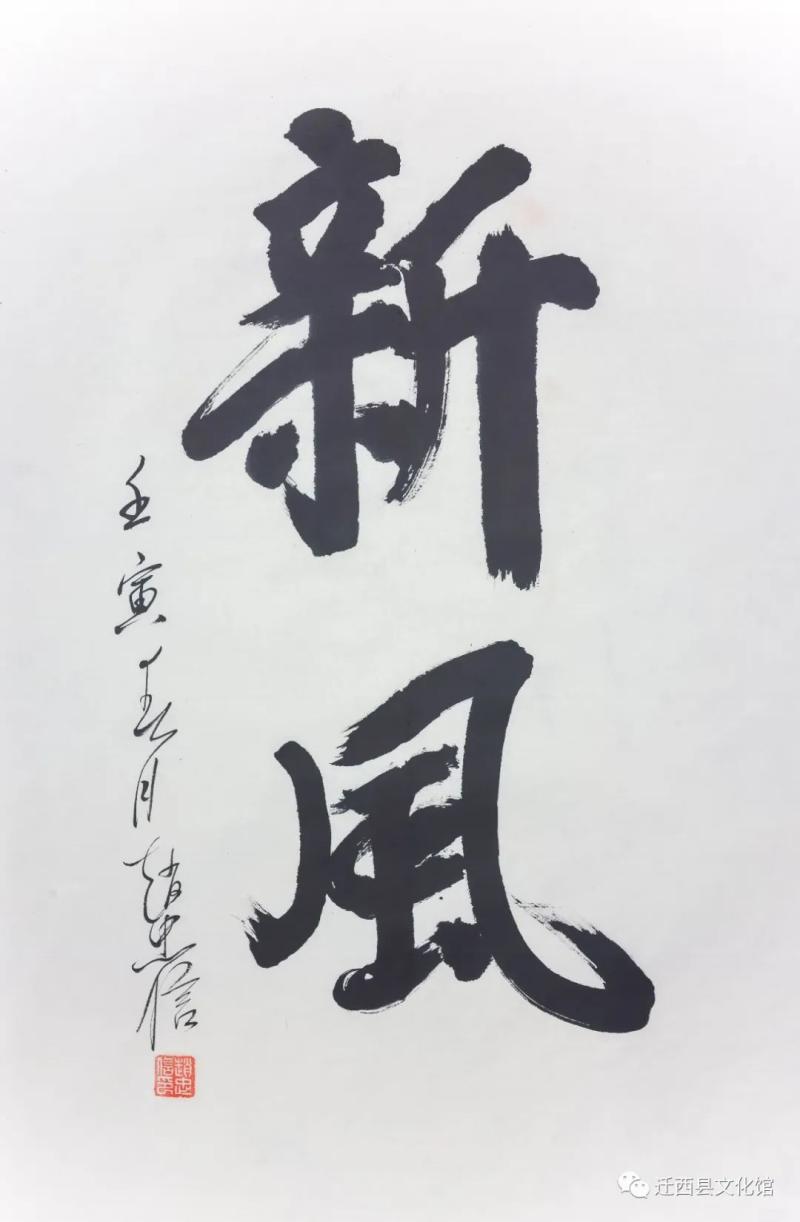 新風
壬寅春月趙忠信
趙忠信印
迁西县文化馆